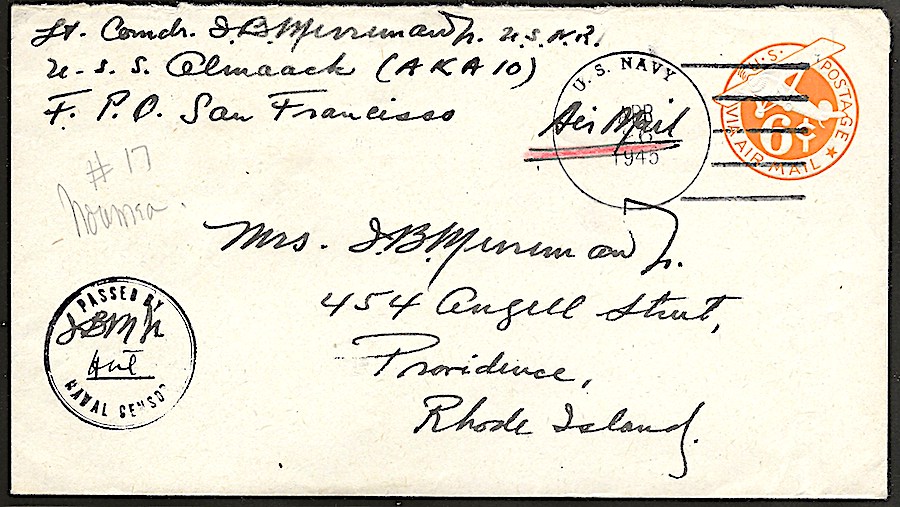 Lt. Comdr. I.B. Merriman Jr. U.S.N.R.
U.S.S. Almaack (AKA10)
F.P.O. San Francisco
U.S. NAVY
APR
1945
Air Mail
U.S. POSTAGE
6¢
VIA AIR MAIL
#17
Noumea.
Mrs. I.B. Merriman Jr.
454 Angell Street,
Providence,
Rhode Island.
PASSED BY
IBM Jr
NAVAL CENSOR